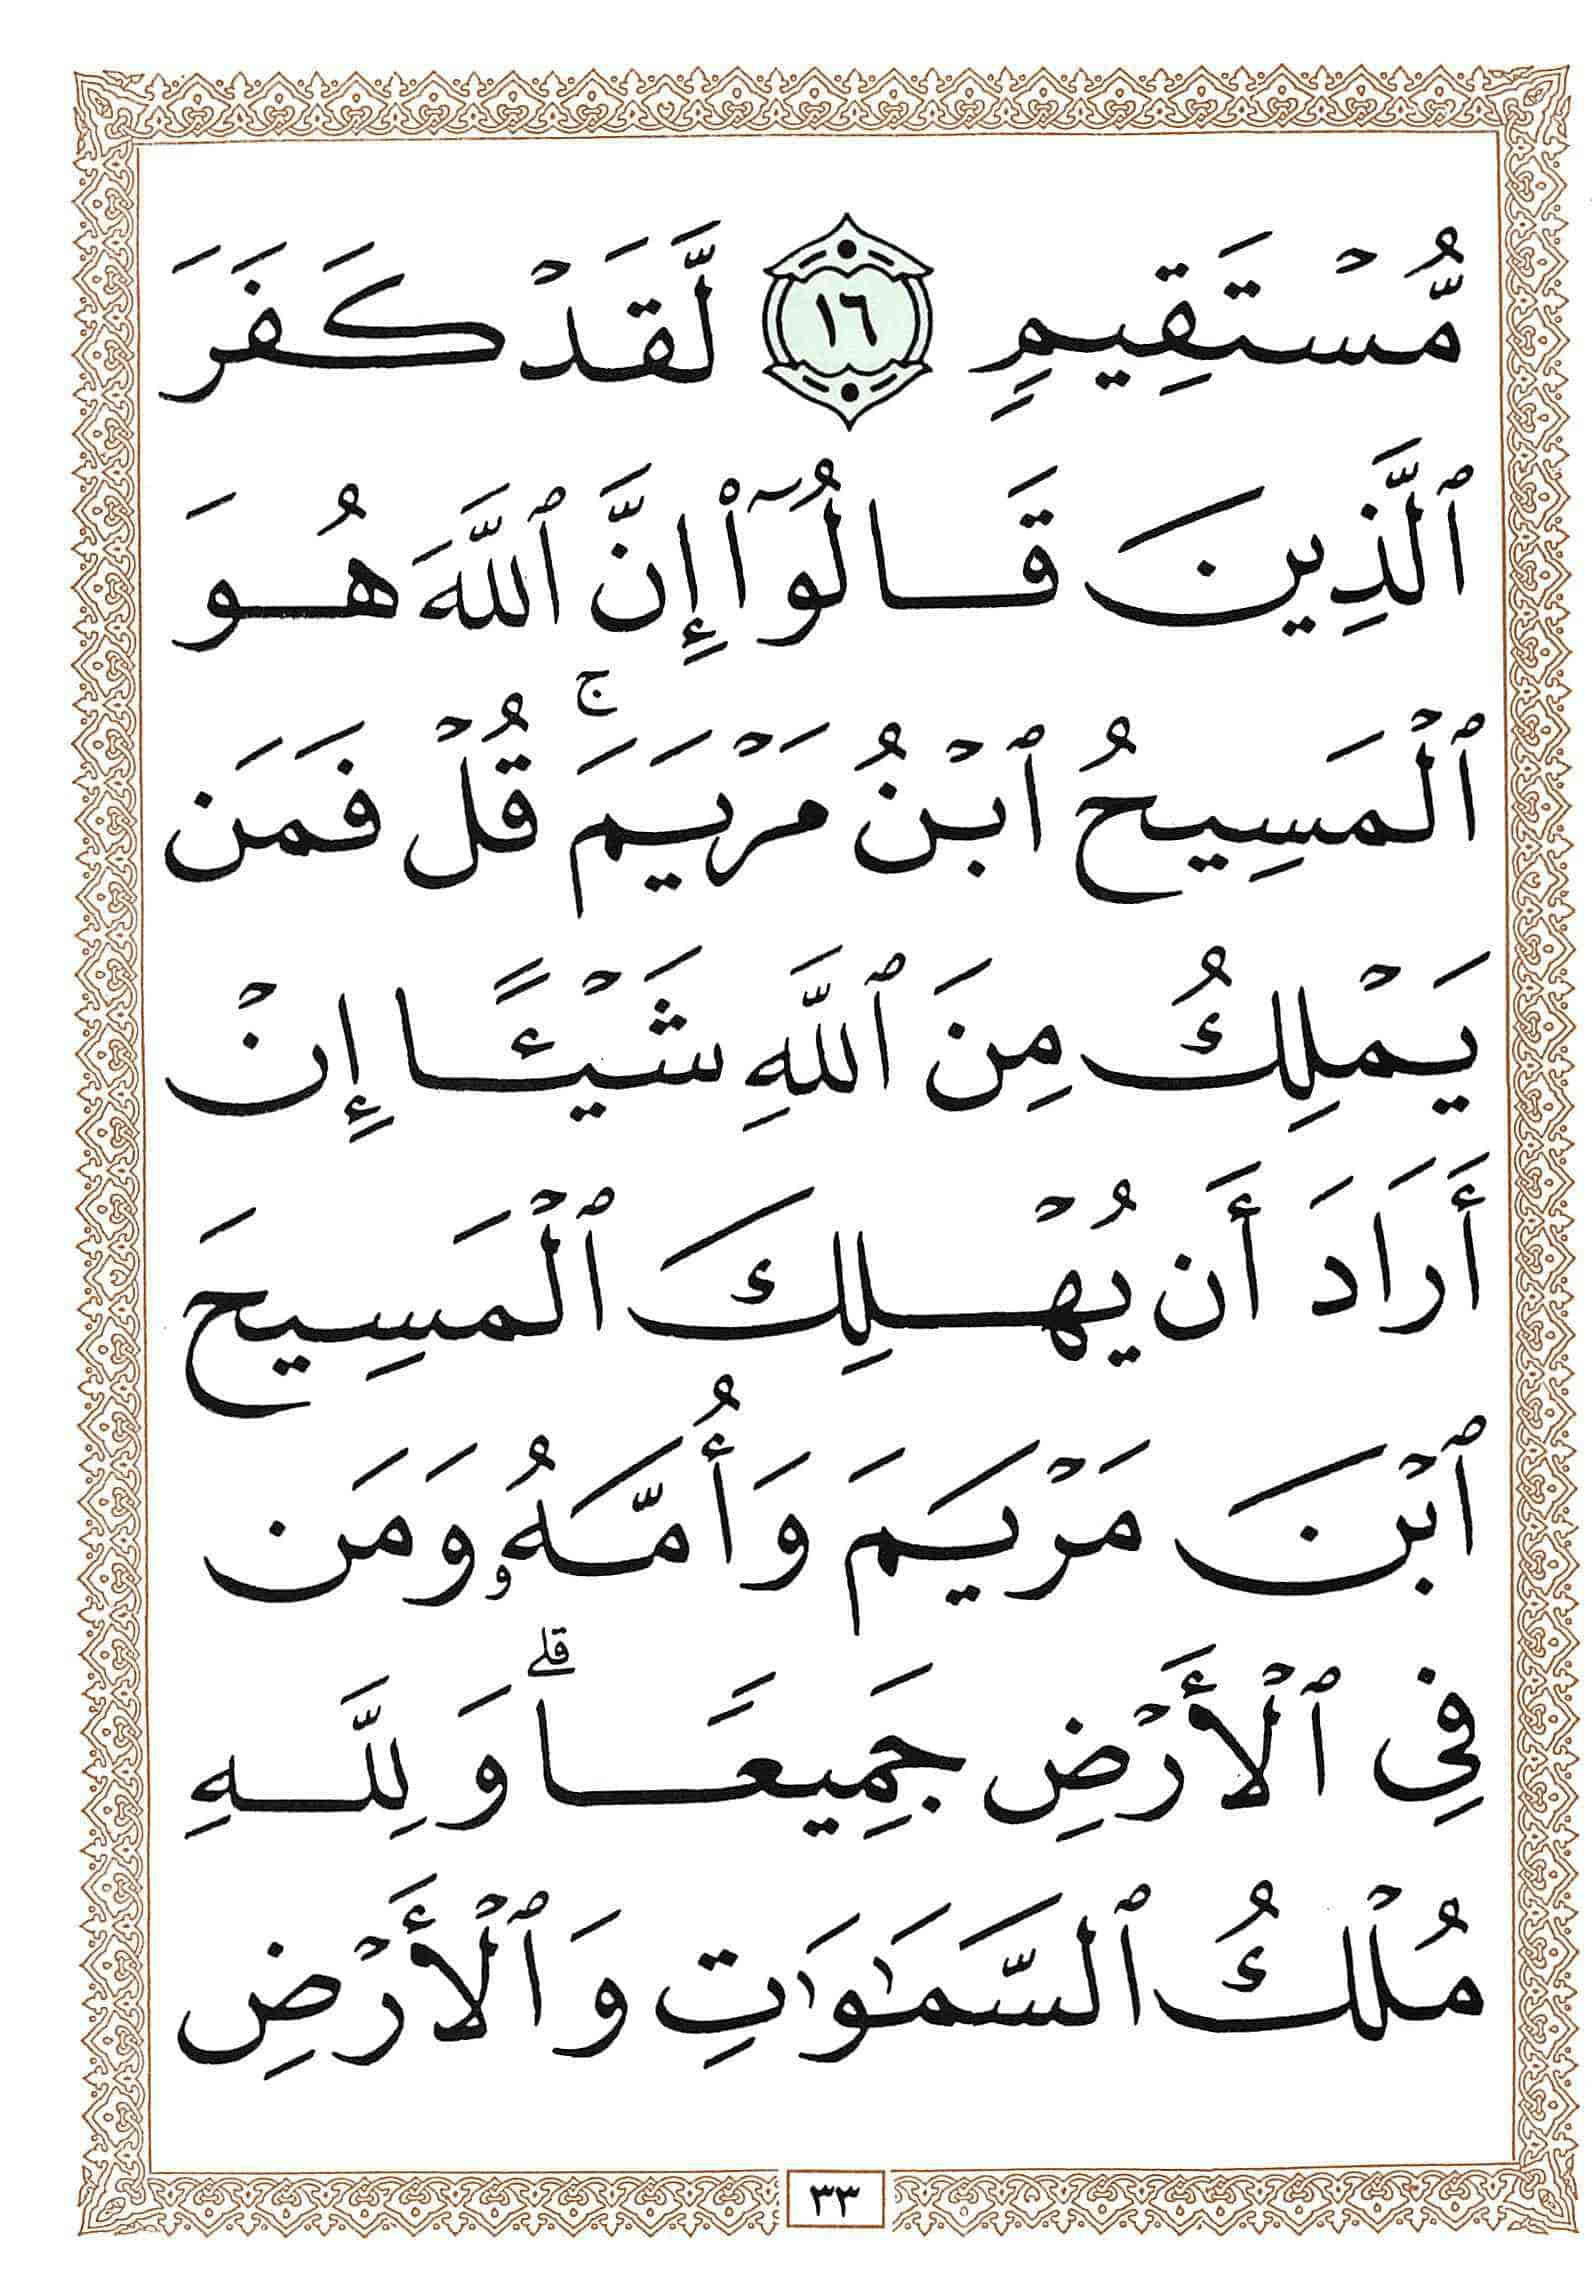 مُّسْتَقِيمٍ ١٦ لَّقَدْ كَفَرَ
ٱلَّذِينَ قَالُوٓا۟ إِنَّ ٱللَّهَ هُوَ
ٱلْمَسِيحُ ٱبْنُ مَرْيَمَ ۚ قُلْ فَمَن
يَمْلِكُ مِنَ ٱللَّهِ شَيْـًٔا إِنْ
أَرَادَ أَن يُهْلِكَ ٱلْمَسِيحَ
ٱبْنَ مَرْيَمَ وَأُمَّهُۥ وَمَن
فِى ٱلْأَرْضِ جَمِيعًا ۗ وَلِلَّهِ
مُلْكُ ٱلسَّمَـٰوَٰتِ وَٱلْأَرْضِ
٣٣